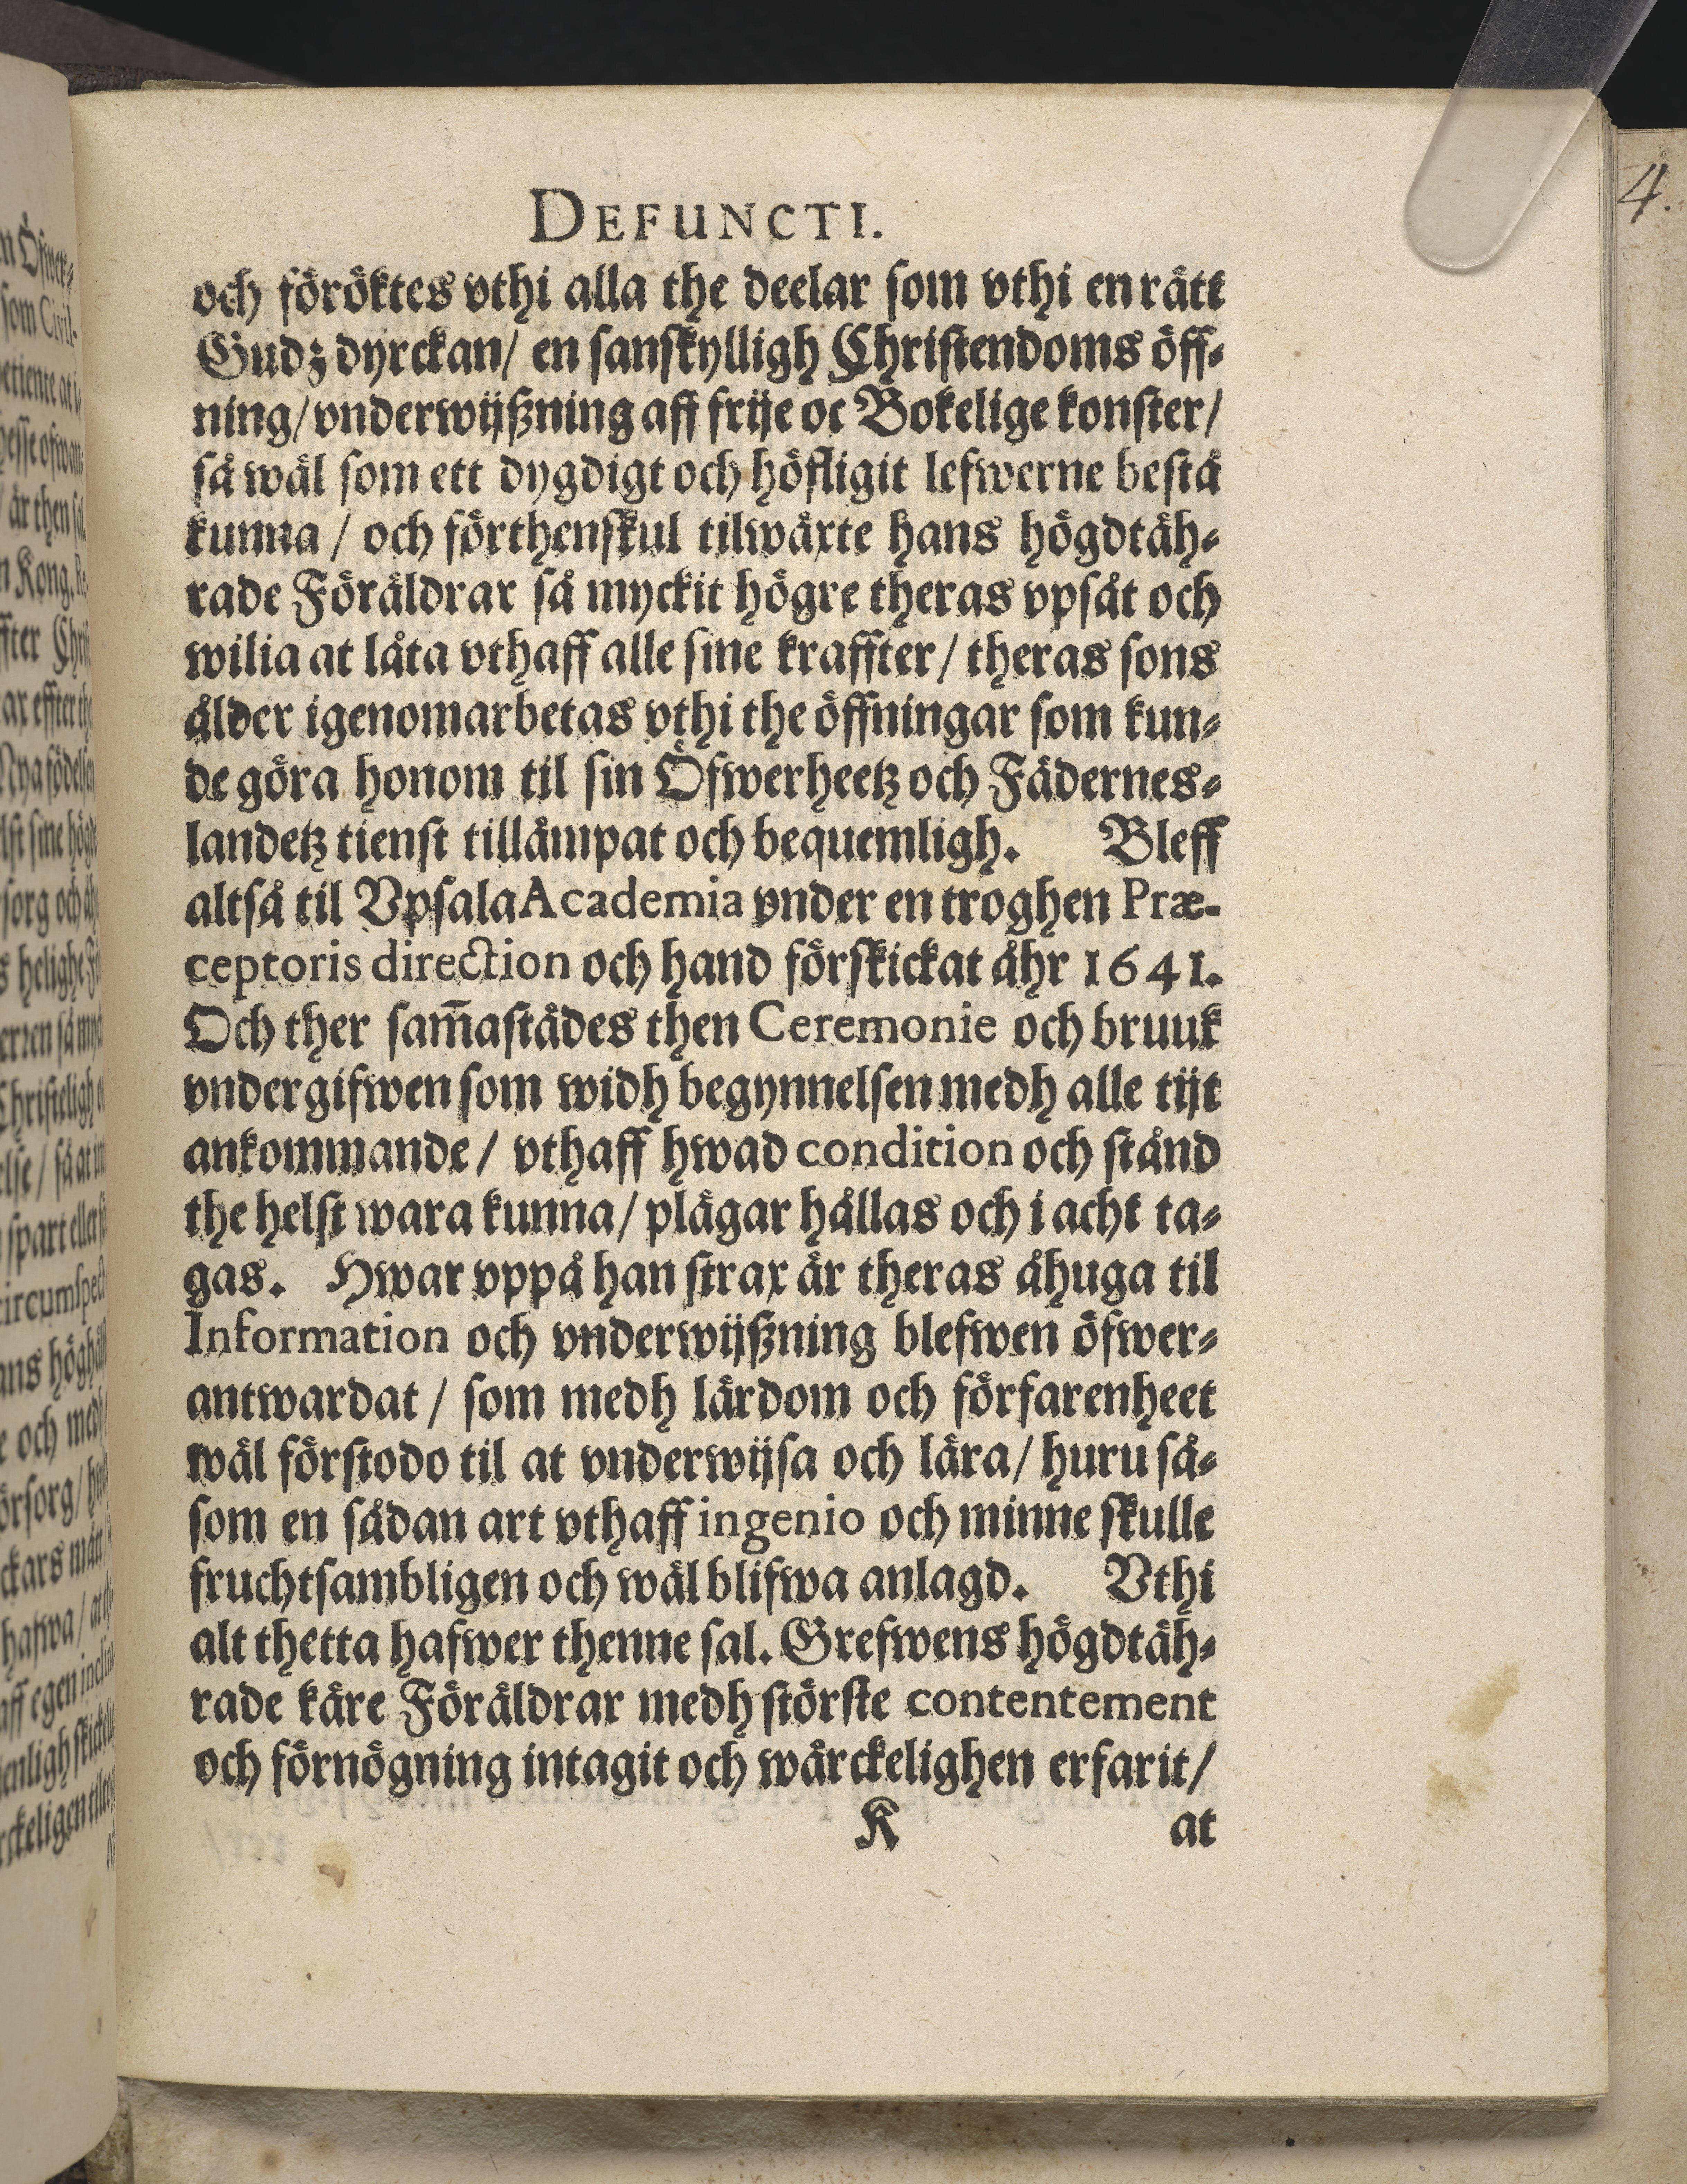 DEFUNCTI.
och föröktes vthi alla the deelar som vthi en rätt
Gudz dyrckan/ en sanskylligh Christendoms öff-
ning/ vnderwijßning aff frije oc Bokelige konster/
så wäl som ett dygdigt och höfligit lefwerne bestå
kunna / och förthenskul tilwäxte hans högdtäh-
rade Föräldrar så myckit högre theras vpsåt och
wilia at låta vthaff alle sine kraffter/ theras sons
ålder igenomarbetas vthi the öffningar som kun-
de göra honom til sin Öfwerheetz och Fädernes-
landetz tienst tillämpat och bequemligh. Bleff
altså til Vpsala Academia vnder en troghen Præ-
ceptoris direction och hand förskickat åhr 1641.
Och ther sam̃astädes then Ceremonie och bruuk
vndergifwen som widh begynnelsen medh alle tijt
ankommande / vthaff hwad condition och stånd
the helst wara kunna/ plägar hållas och i acht ta-
gas. Hwar vppå han strax är theras åhuga til
Information och vnderwijßning blefwen öfwer-
antwardat / som medh lärdom och förfarenheet
wäl förstodo til at vnderwijsa och lära/ huru så-
som en sådan art vthaff ingenio och minne skulle
fruchtsambligen och wäl blifwa anlagd. Vthi
alt thetta hafwer thenne sal. Grefwens högdtäh-
rade käre Föräldrar medh störste contentement
och förnögning intagit och wärckelighen erfarit/
K at
4.